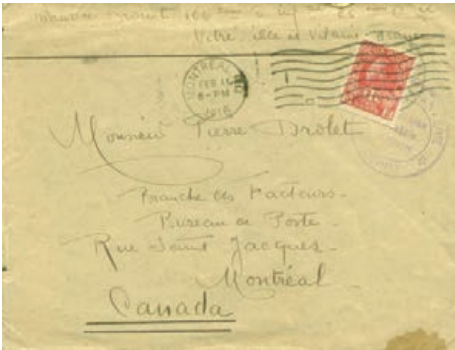 Vitré, ille et Vilaine. France
MONTREAL
FEB 11
6-PM
1916
Monsieur Pierre Drolet
Branche des Facteurs.
Bureau de Poste.
Rue Saint Jacques.
Montréal
Canada